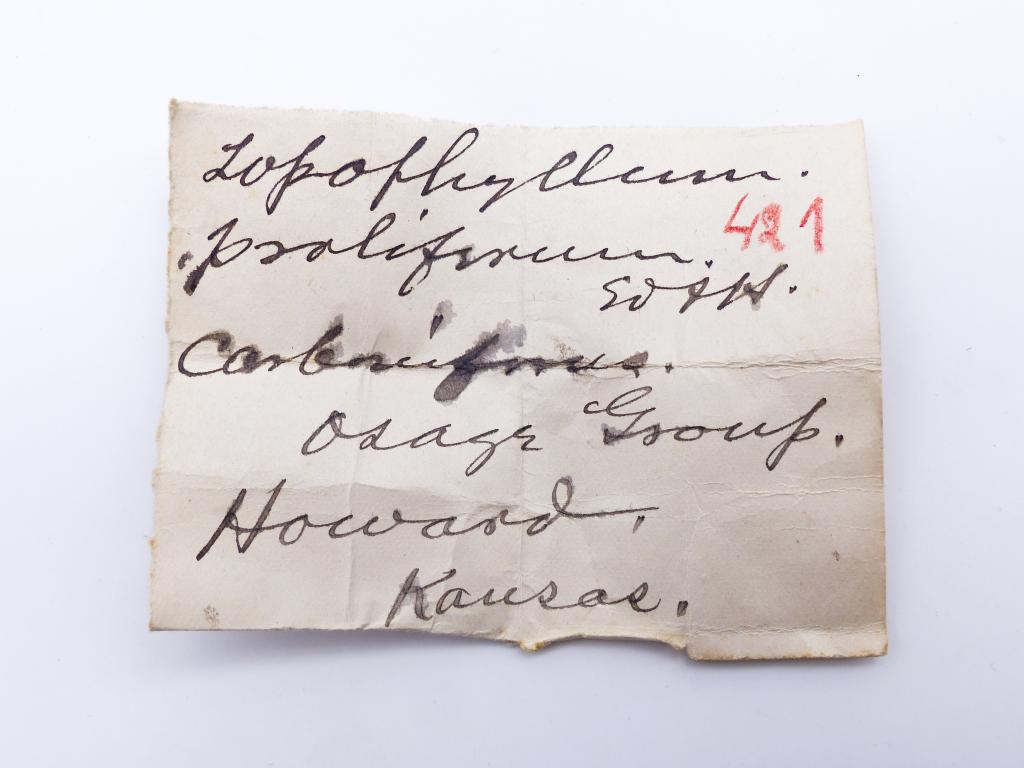 Lopophyllum.
proliferum. 421
Ed & H.
Carboniferous.
Osage Group.
Howard,
Kansas.